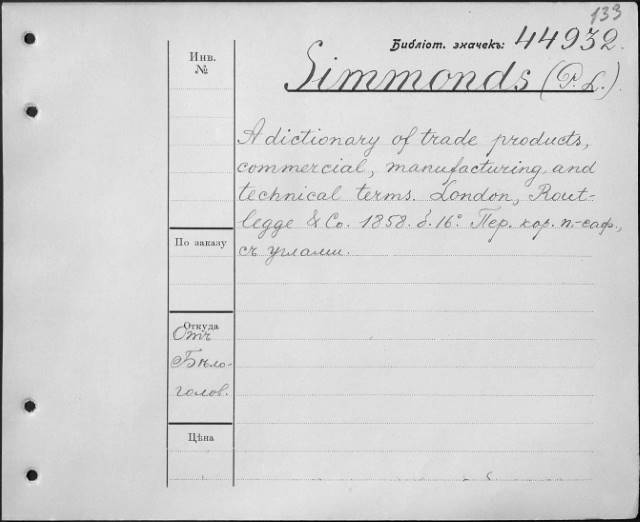 133
Библіот. значекъ: 44932.
Simmonds (P. L.).
Инв.
№
A dictionary of trade products,
commercial, manufacturing and
technical terms. London, Rout-
legge & Co. 1858. б. 16°. Пер. кор. п.-саф.,
съ углами.
По заказу
Откуда
Отъ
Бѣло-
голов.
Цѣна